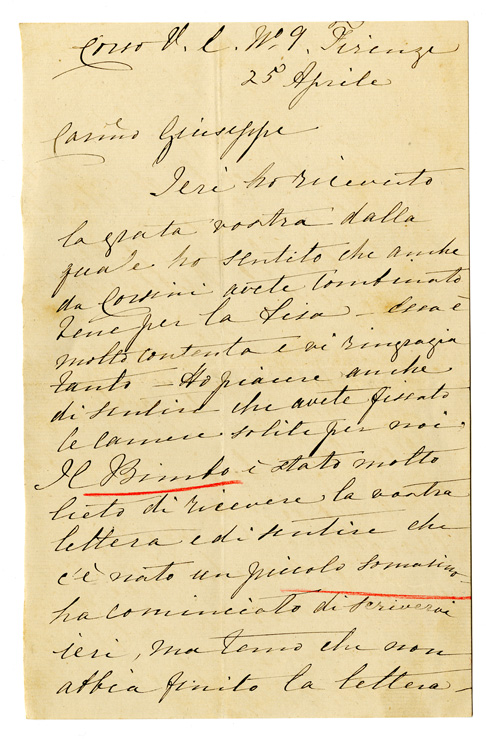 Corso V. E. No. 9. Firenze
25 Aprile
Carino Giuseppe
Ieri ho ricevuto
la grata vostra dalla
quale ho sentito che anche
da Corsini avete combinato
bene per la Lisa — Essa è
molto contenta e vi ringrazia
tanto — Ho piacere anche
di sentire che avete fissato
le camere solite per noi.
Il Bimbo è stato molto
lieto di ricevere la vostra
lettera e di sentire che
c'è nato un piccolo somarino
ha cominciato di scrivervi
ieri, ma temo che non
abbia finito la lettera —